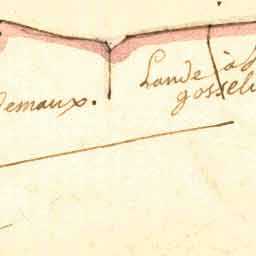 demaux.
Lande à
gosseli